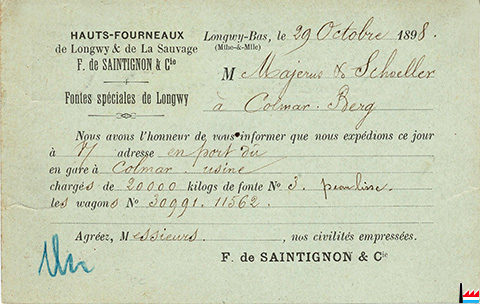 HAUTS-FOURNEAUX
de Longwy & de La Sauvage
F. de SAINTIGNON & Cie
Fontes spéciales de Longwy
Longwy-Bas, le 29 Octobre 1898.
(Mthe-&-Mlle)
M Majerus & Schoeller
à Colmar-Berg
Nous avons l'honneur de vous informer que nous expédions ce jour
à V/ adresse en port dû
en gare à Colmar usine
chargés de 20000 kilogs de fonte No 3.
les wagons No 30991. 11562.
Agréez, Messieurs, nos civilités empressées.
F. de SAINTIGNON & Cie